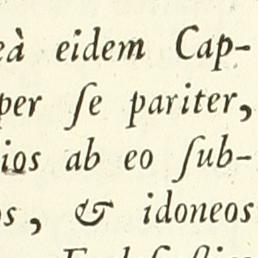 eà eidem Cap-
per ſe pariter,
ios ab eo ſub-
os, & idoneos